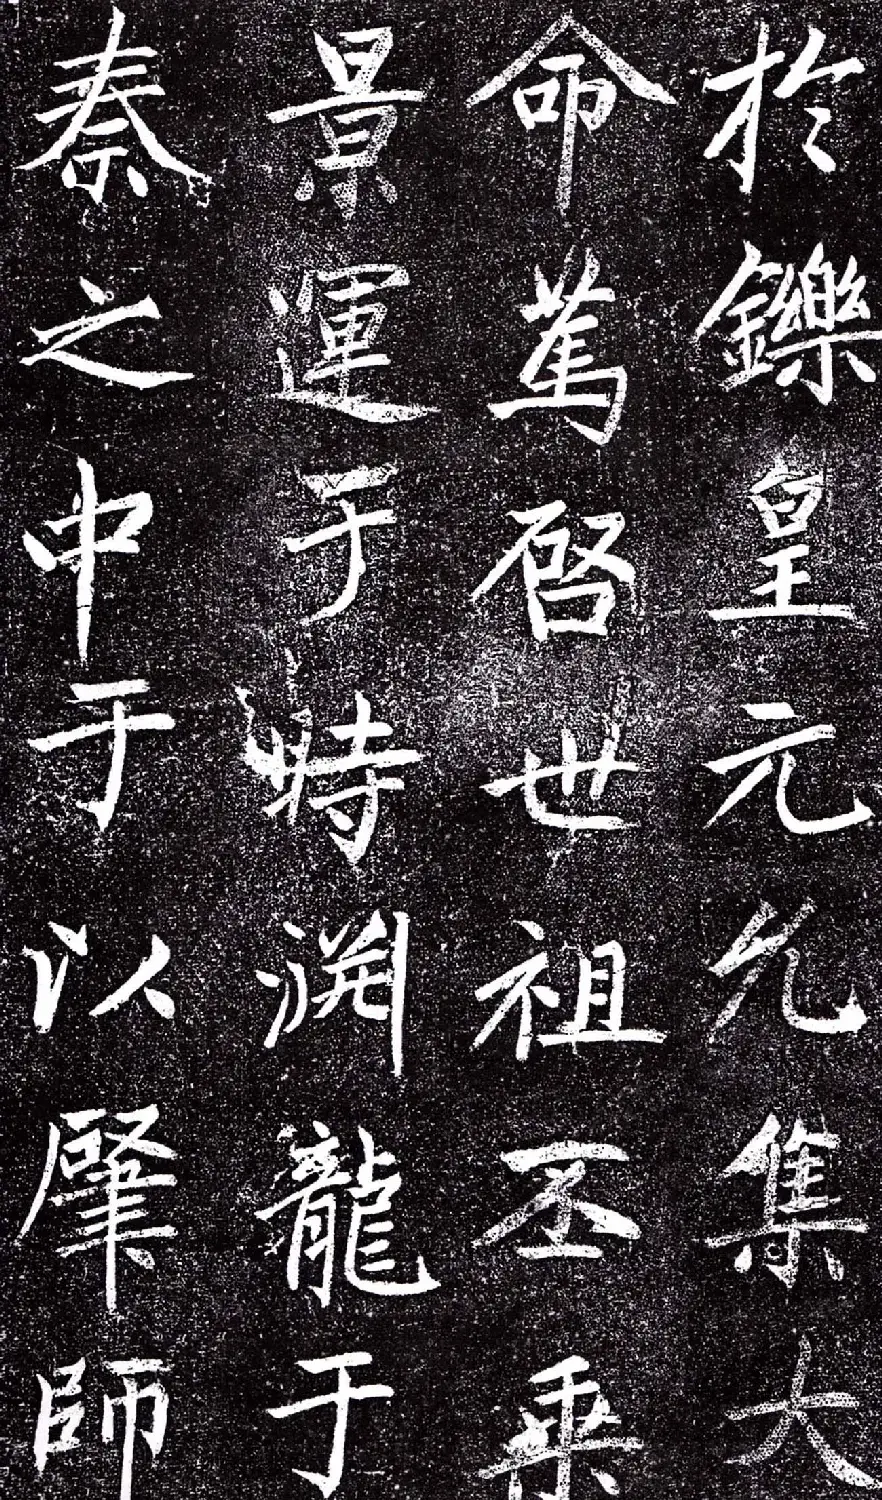 於鑠皇元允集大
命篤啓世祖丕乗
景運于時淵龍于
秦之中于以肇師